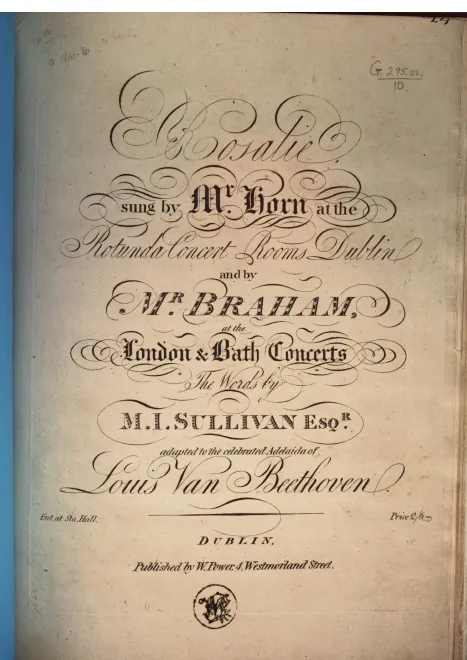 G. 295.ss.
10
Rosalie
sung by Mr. Horn at the
Rotunda Concert Rooms Dublin
and by
MR. BRAHAM,
at the
London & Bath Concerts
The Words by
M.I. SULLIVAN ESQR.
adapted to the celebrated Adelaida of
Louis Van Beethoven.
Ent. at Sta. Hall.
Price 2/6
DUBLIN,
Published by W. Power, 4, Westmorland Street.